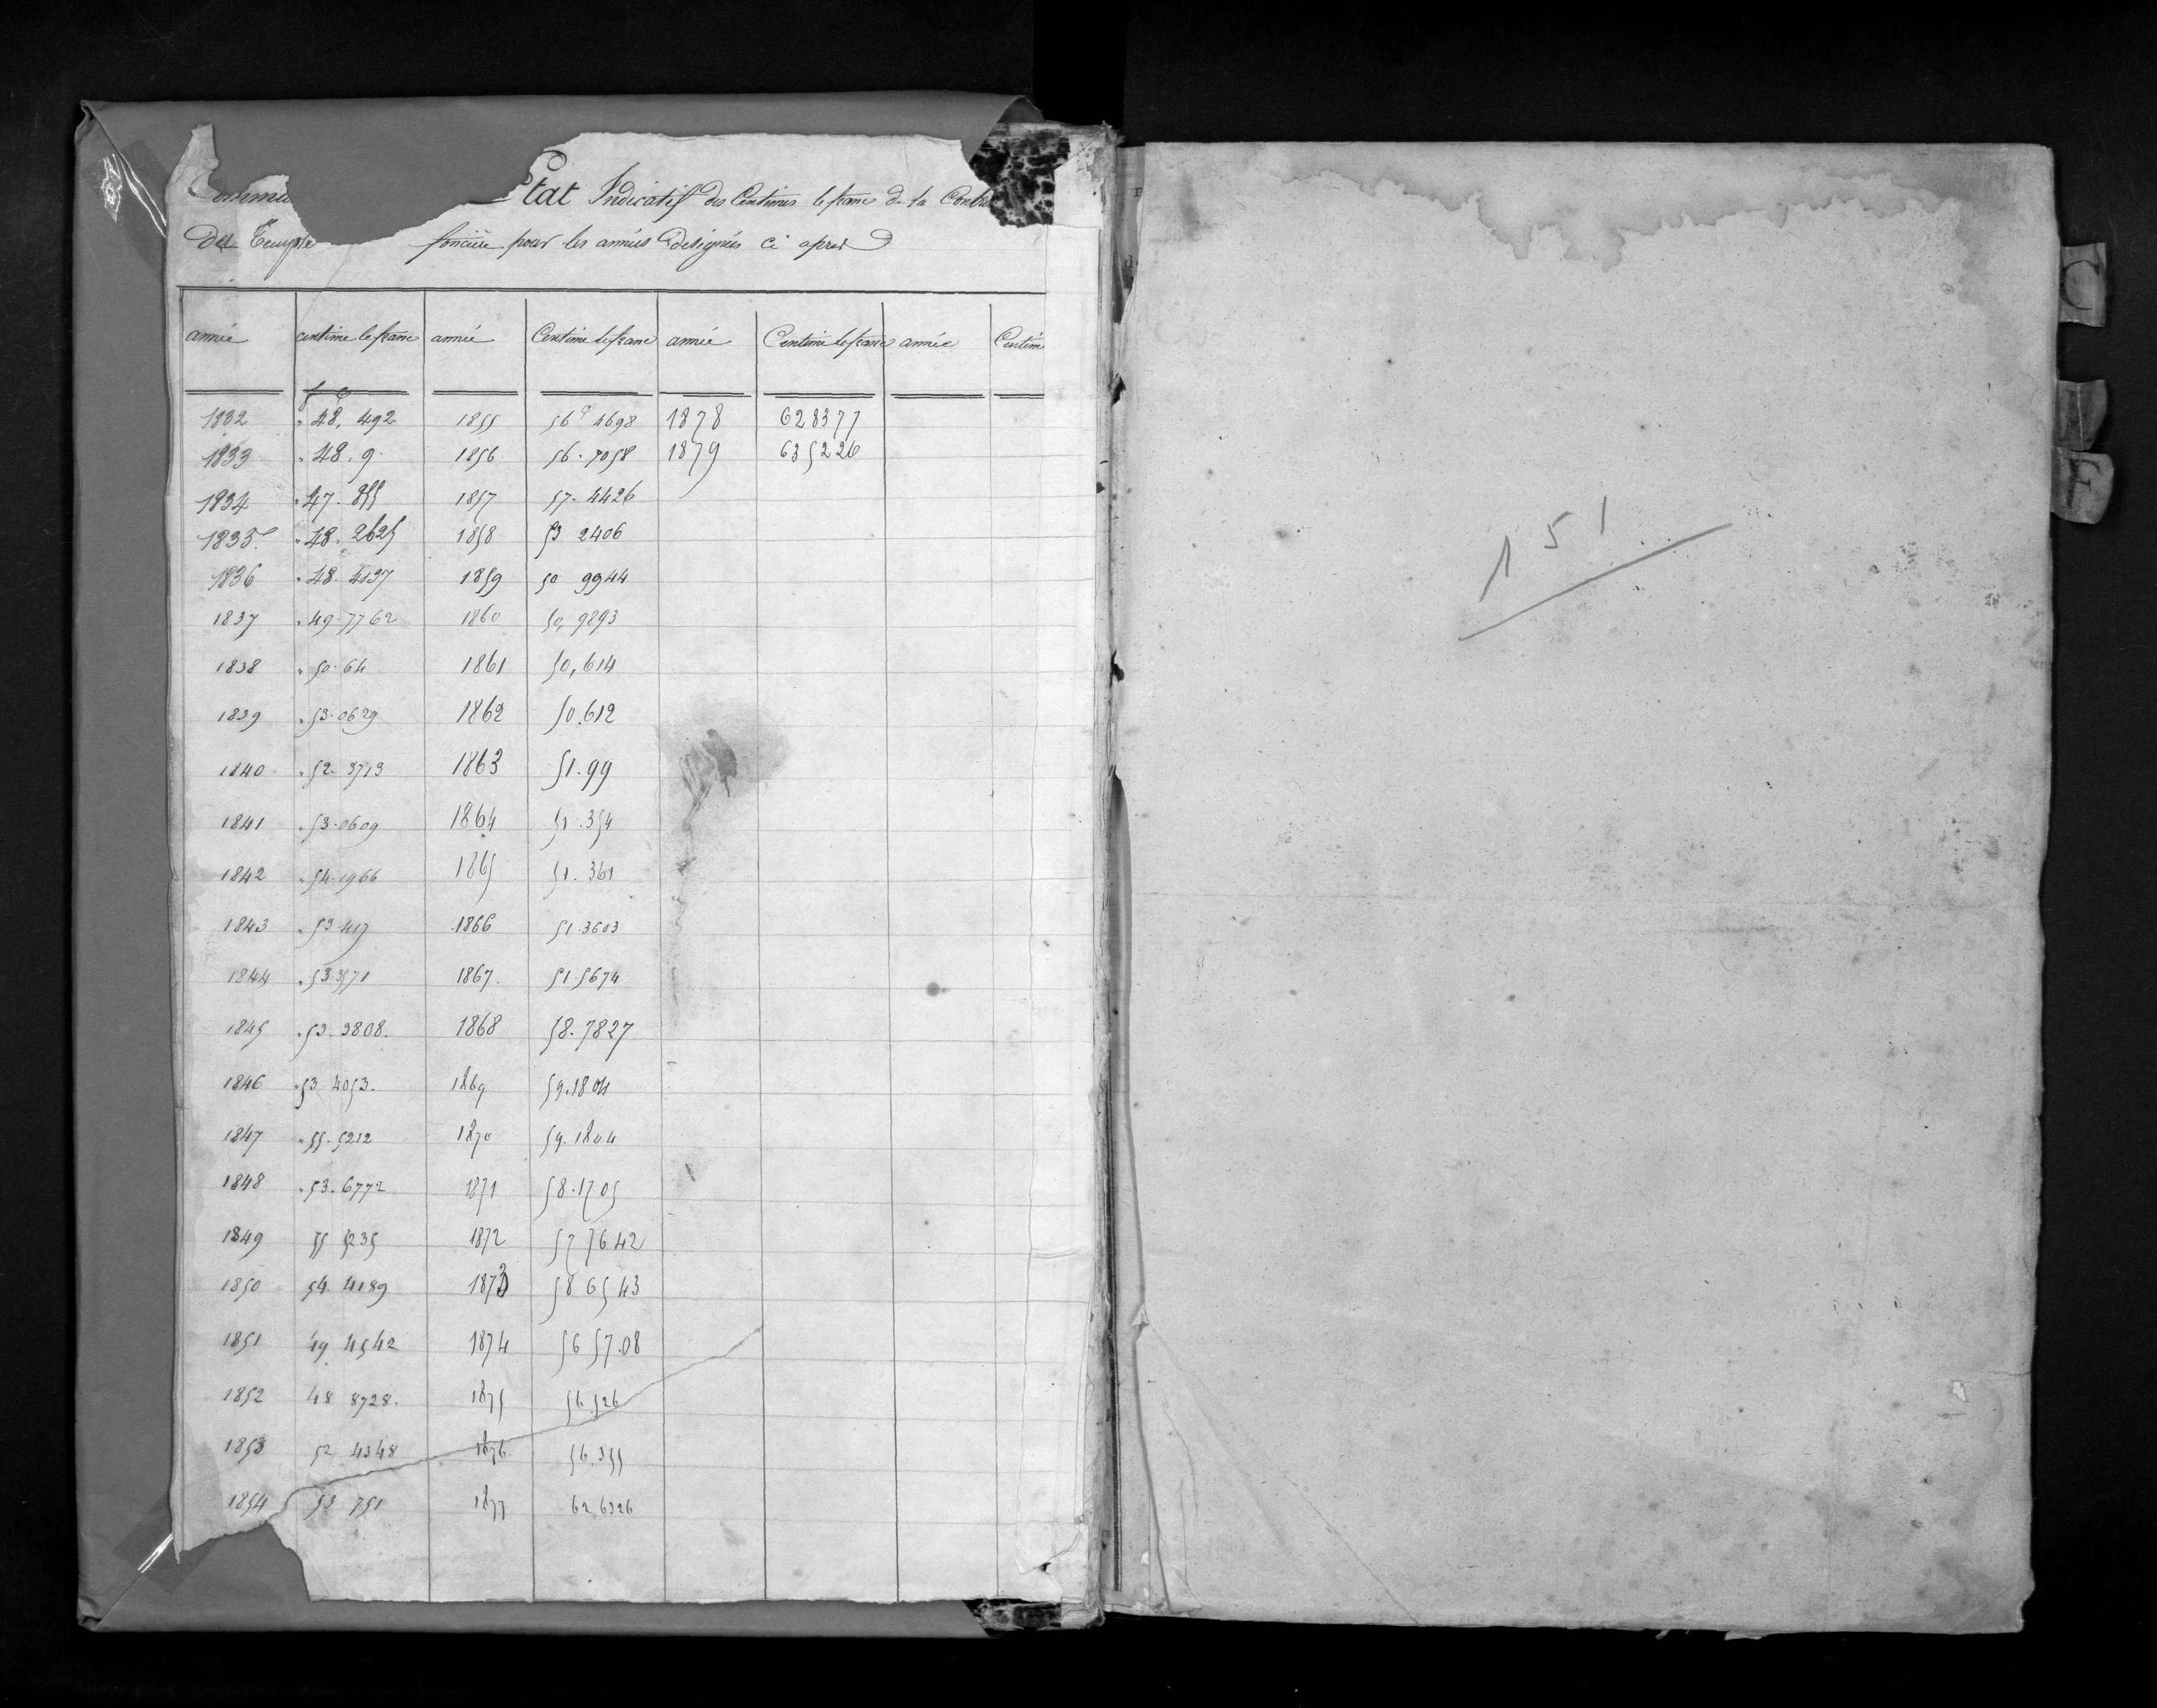 Etat Indicatif des Centimes le franc de la
Du Temple foncière pour les années designées ci apres
année centime le franc année Centime le franc année Centime le franc année Centim
f c
1832 " 48, 492 1855 56c 4698 1878 628377
1833 " 48. 9 1856 56. 7058 1879 635226
1834 " 47. 855 1857 57. 4426
1835 " 48. 2625 1858 53 2406
1836 " 48. 4137 1859 50 9944
1837 " 49. 7762 1860 50, 9893
1838 " 50. 64 1861 50, 614
1839 " 53. 0629 1862 50. 612
1840 " 52. 3713 1863 51. 99
1841 " 53. 0609 1864 51. 354
1842 " 54. 1966 1865 51. 361
1843 " 53 417 1866 51. 3603
1844 " 53. 3571 1867. 51 5674
1845 " 53. 3808. 1868 58. 7827
1846 " 53 4053. 1869 59. 1804
1847 " 55. 5212 1870 59. 1804
1848 " 53. 6772 1871 58. 1705
1849 55 5235 1872 57 7642
1850 54 4189 1873 58 6543
1851 49 4542 1874 56 57.08
1852 48 8728. 1875 56. 526
1853 52 4348 1876 56. 355
1854 53 751 1877 62, 6326
151
C
F